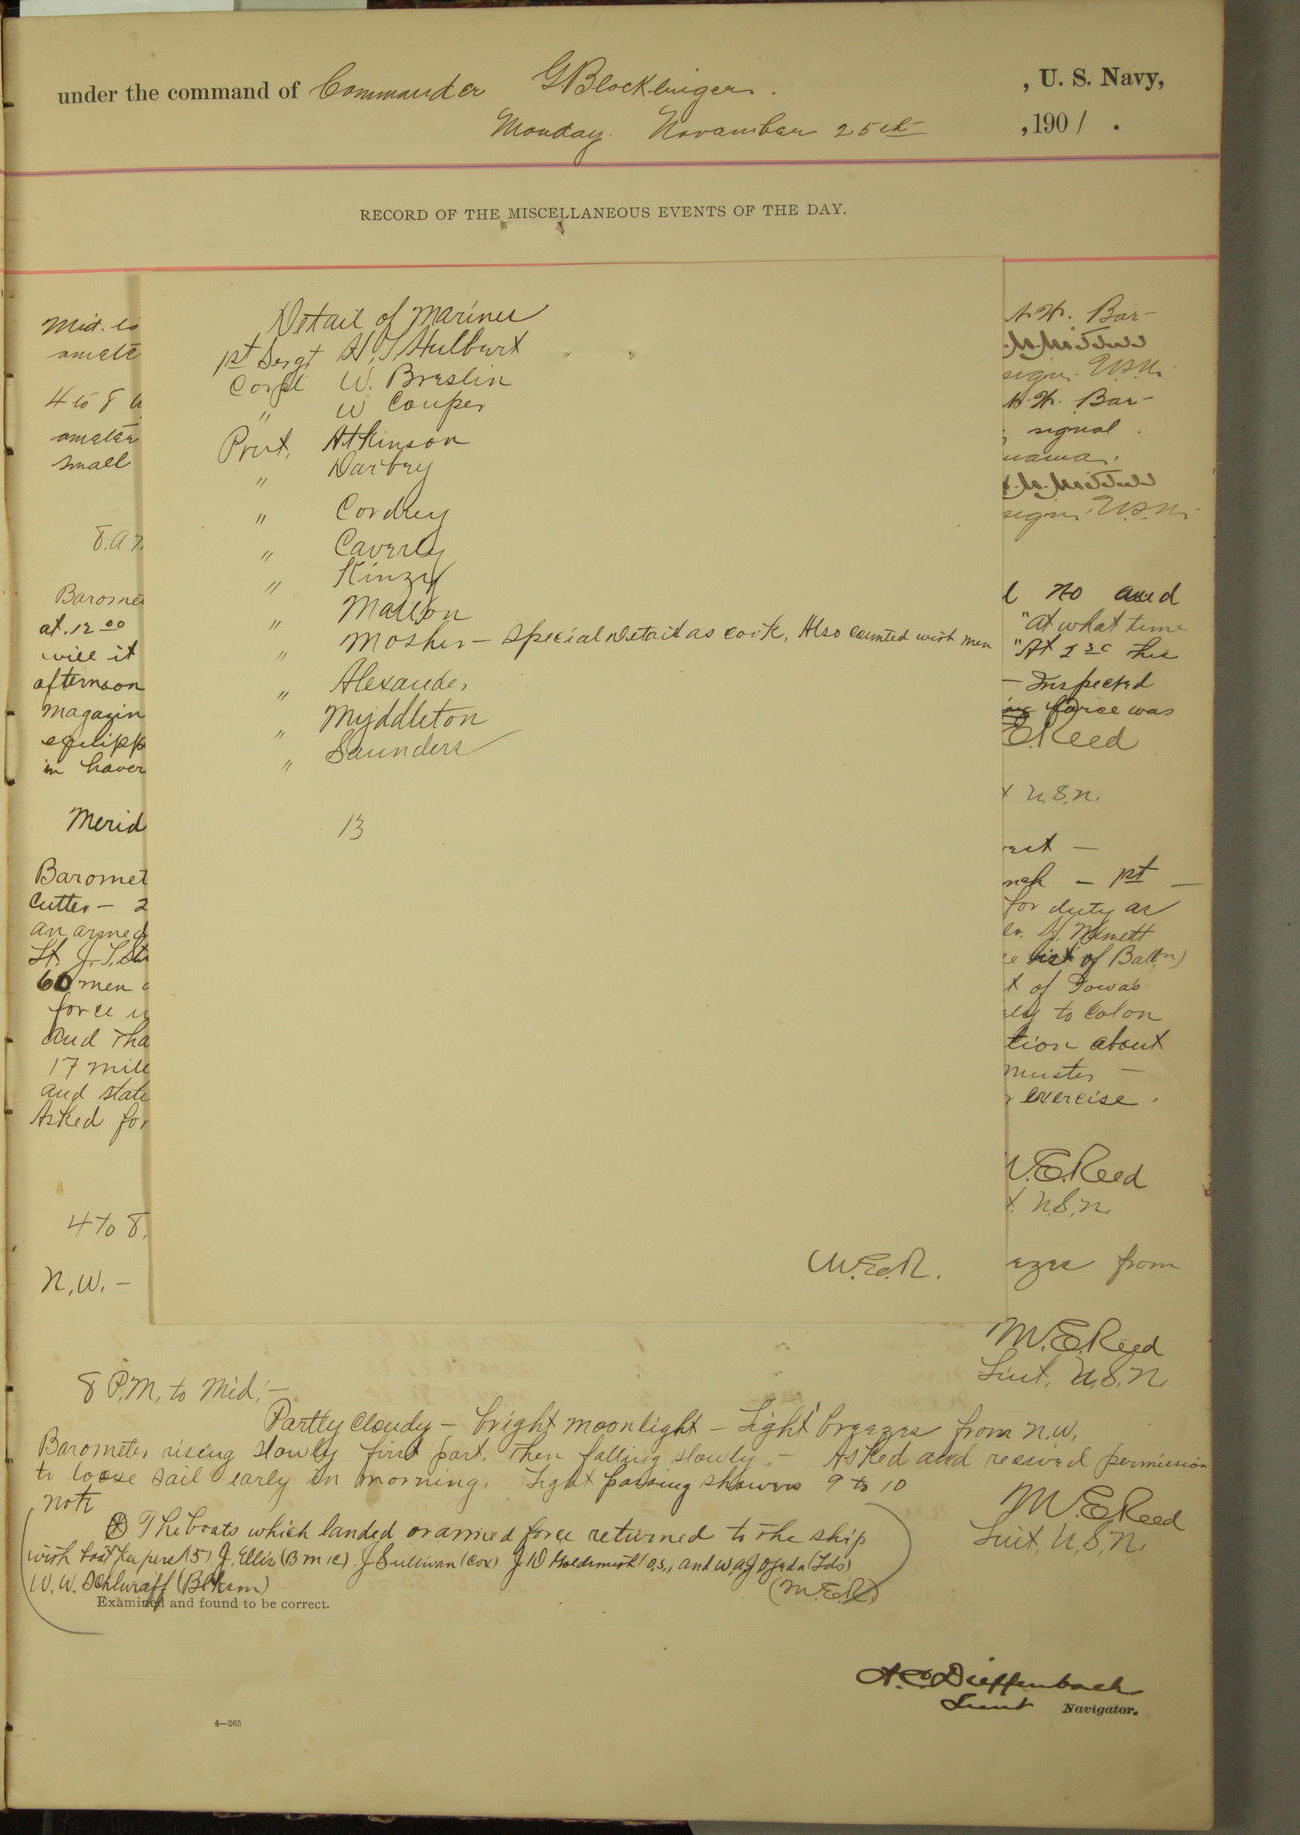 under the command of Commander G Blocklinger. , U. S. Navy,
Monday November 25th , 1901 .
RECORD OF THE MISCELLANEOUS EVENTS OF THE DAY.
Detail of Marines
1st Sergt H. S Hulburt
Corpl W. Breslin
" W Couper
Prvt. Atkinson
" Darbey
" Cordrey
" Caverly
" Kinzy
" Mallon
" Mosher - Special Detail as cook, Also counted with men
" Alexander
" Myddleton
" Saunders
13
W.E.R.
Mid. to
4 to 8
small
8. A
Barome
at 12 00
will it
afternoon
magazin
equipp
in haver
Merid
Baromet
Cutter - 2
an armed
Lt. J. S.
60 men
force
and tha
17 mile
and state
Asked for
4 to 8.
N.W. -
H. W. Bar-
U.S.N.
H. W. Bar-
signal.
U.S.N.
no and
"at what time
"At 1 30 this
- Inspected
force was
E. Reed
U.S.N.
- 1st -
for duty as
list of Battn)
of Iowa's
to Colon
tion about
muster -
exercise.
W. E. Reed
U.S.N.
ezes from
W. E. Reed
Lieut. U.S.N.
8 P.M. to Mid:-
Partly cloudy - bright moonlight - Light breezes from N.W.
Barometer rising slowly first part. Then falling slowly. - Asked and received permission
to loose sail early in morning. Light passing showers 9 to 10
W. E. Reed
Lieut. U.S.N.
Note
The boats which landed our armed force returned to the ship
with boat keepers (5) J. Ellis (B m 1c) J Sullivan (Cox) J W Goldsmith (O.S.) and W A J Ojeda (Lds)
W. W. Schluraff (Bkrsm)
(W.E.R.)
Examined and found to be correct.
A. C. Dieffenbach
Lieut Navigator.
4—265